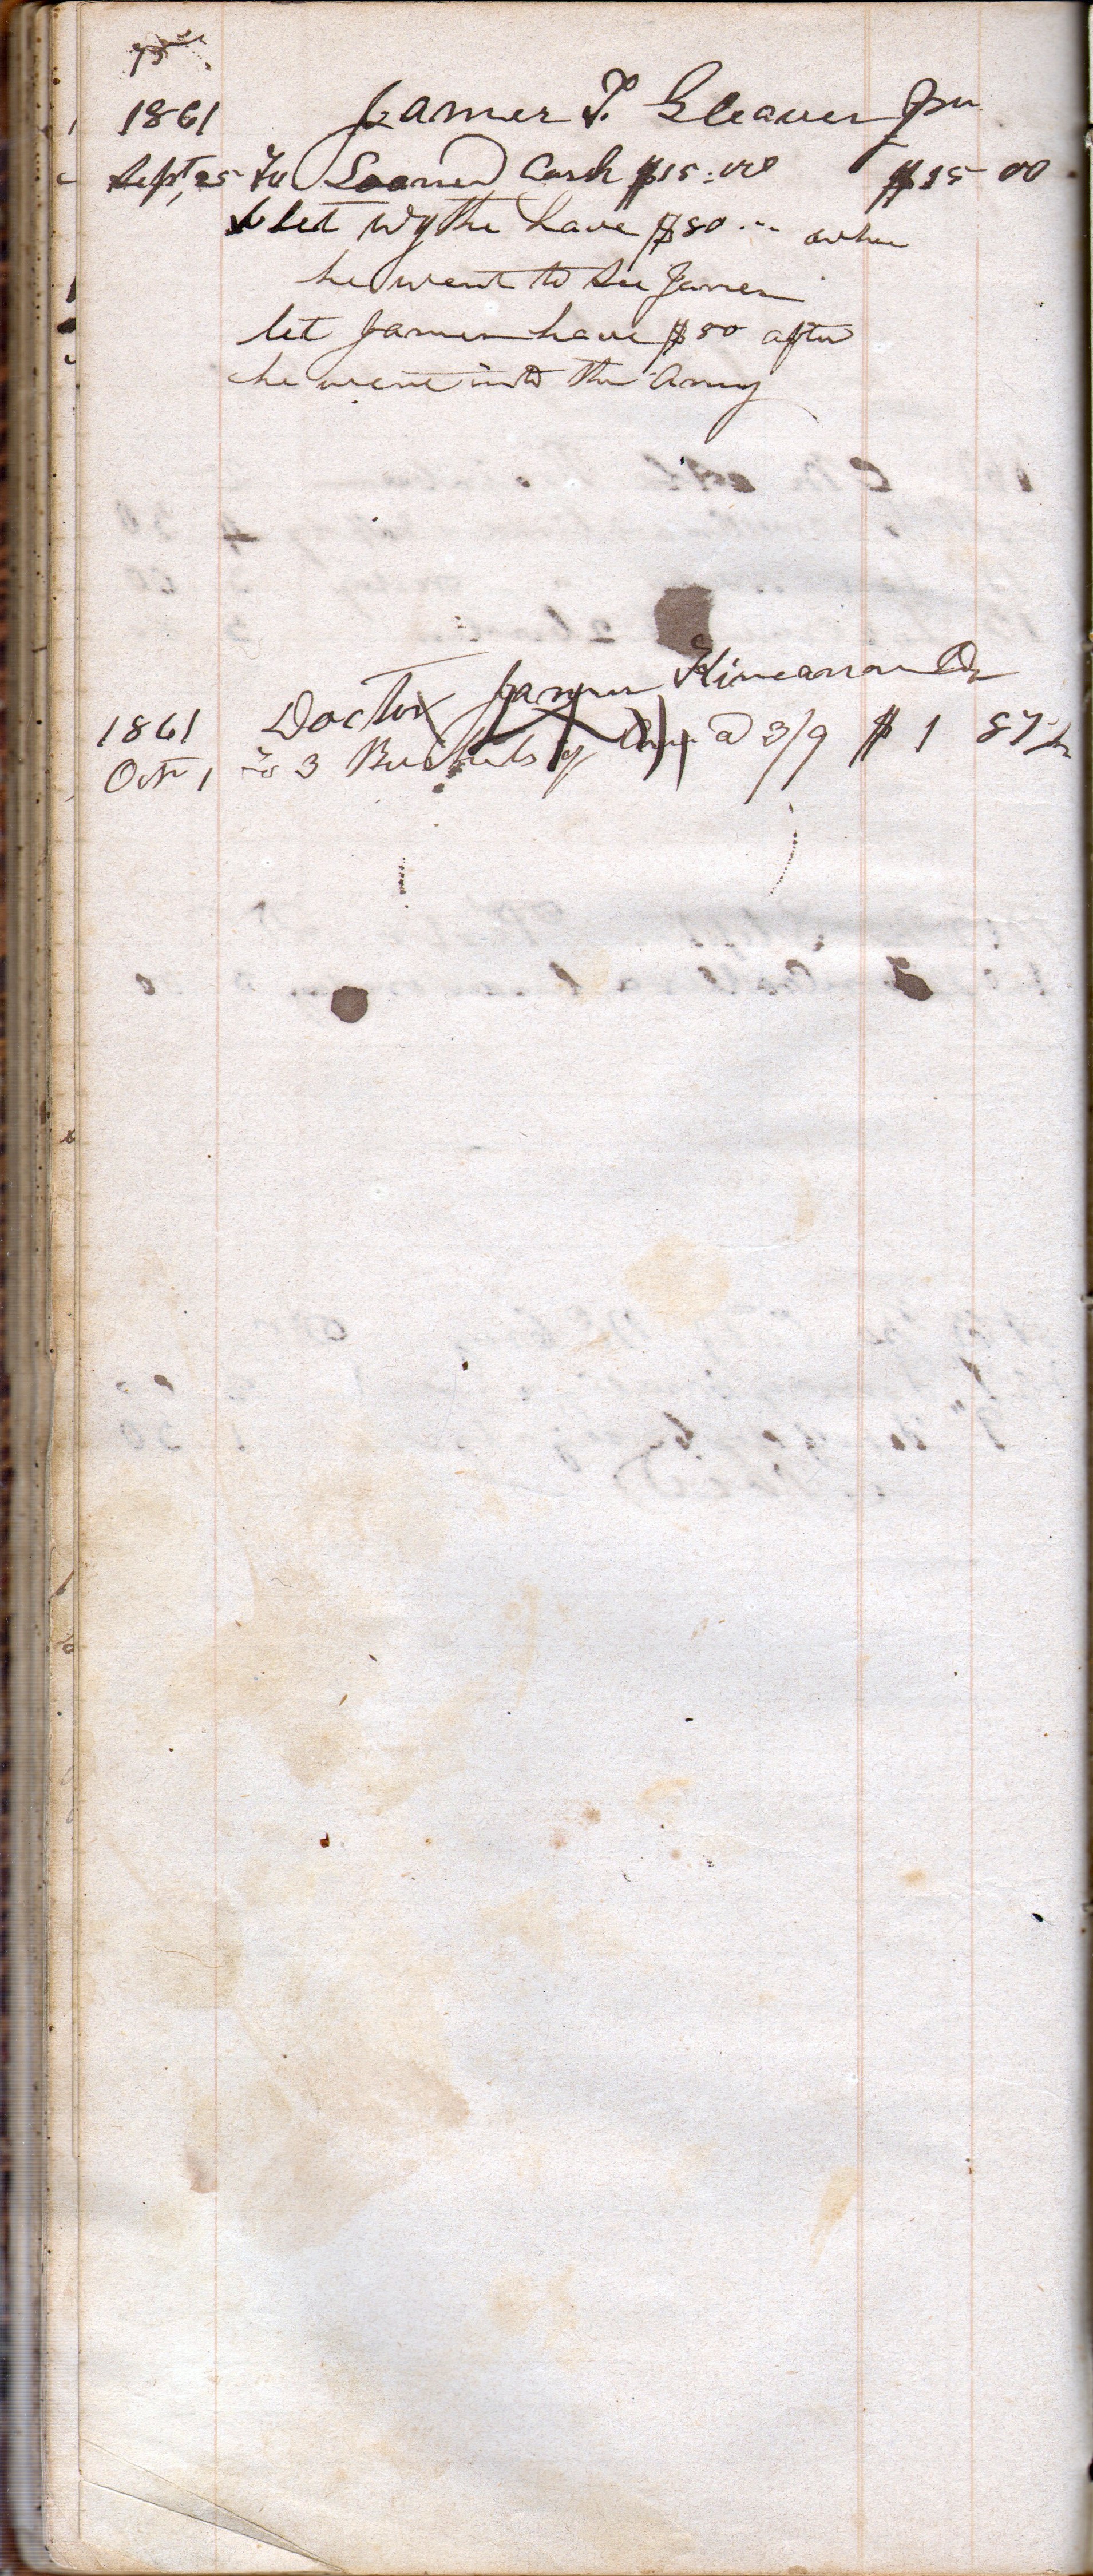 75
1861 James T. Gleaves Jnr
Sept 25 To Loaned Cash $15:00 $15 00
let Wythe have $80 ... when
he went to see James
let James have $80 after
he went into the Army
Doctor James Kincannon Dr
1861
Octr 1 To 3 Bushels of @ 3/9 $ 1 87½